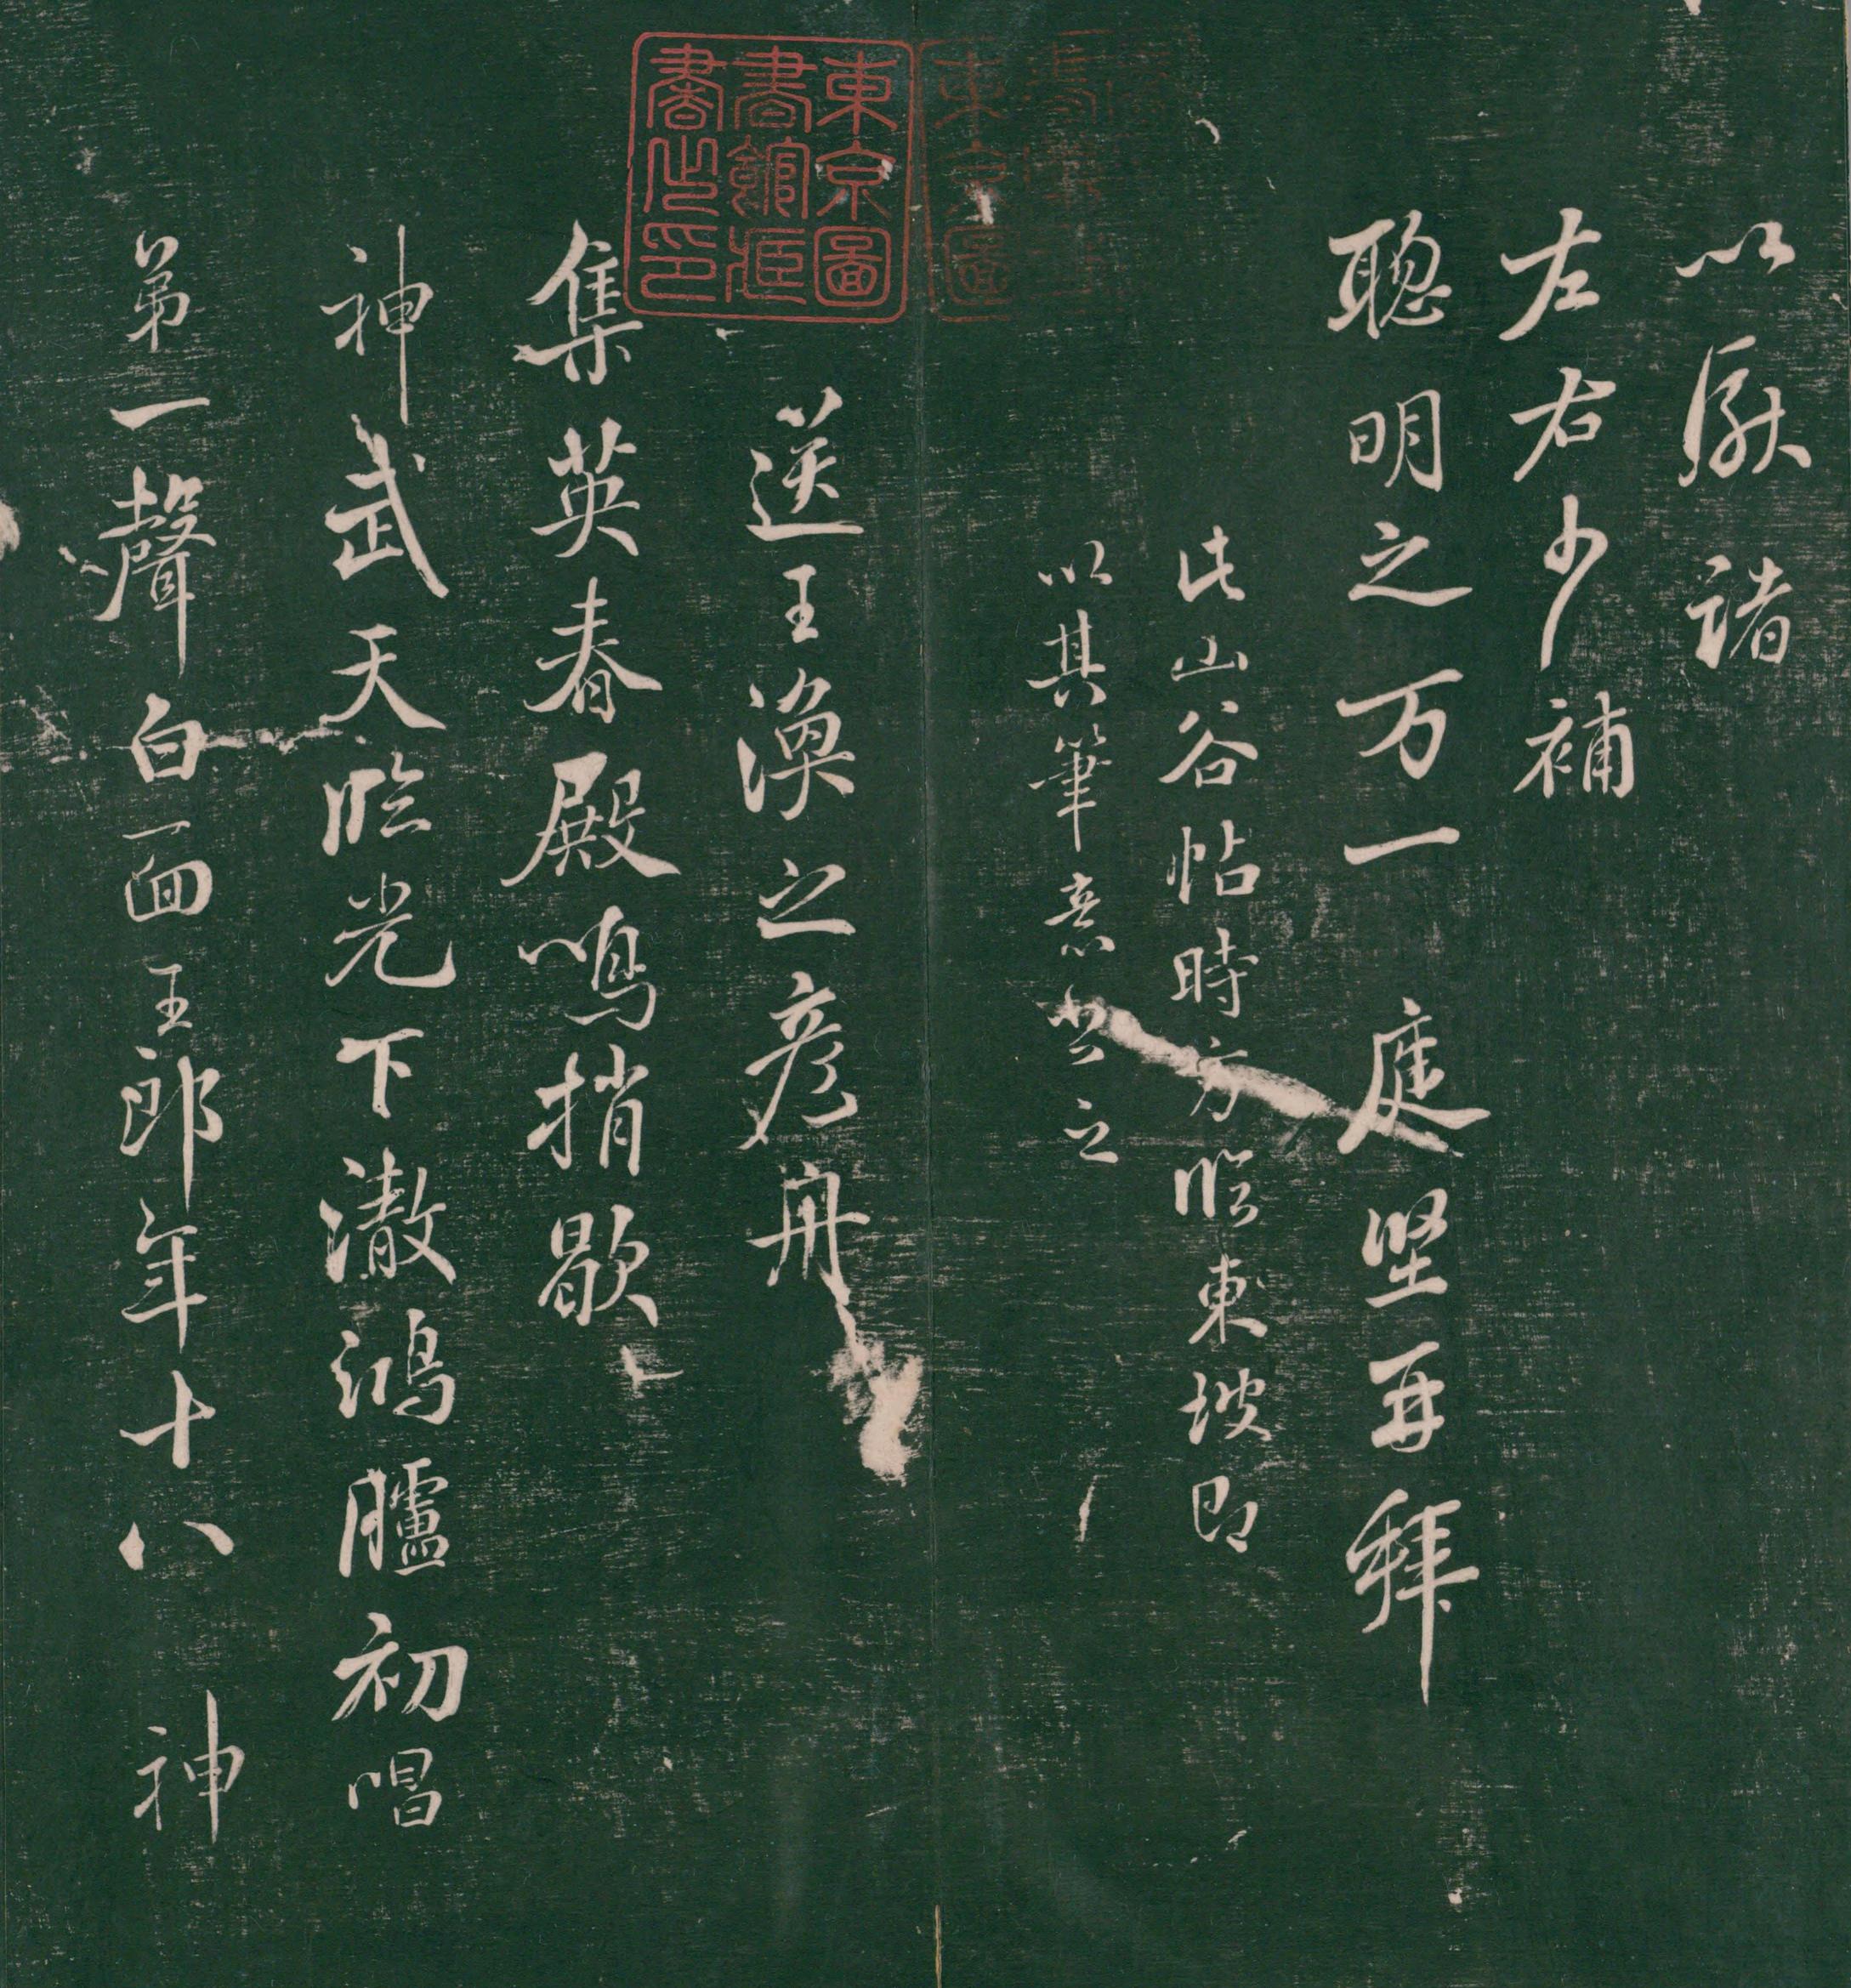 以獻諸
左右少補
聰明之万一 庭坚再拜
此山谷帖時方臨東坡即
以其筆意書之
送王渙之彦舟
集英春殿鳴捎歇
神武天臨光下澈鴻臚初唱
第一聲白面王郎年十八 神
東京圖
書館臧
書之印